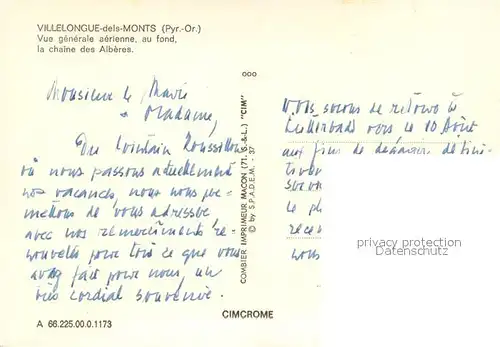 VILLELONGUE-dels-MONTS (Pyr.-Or.)
Vue générale aérienne, au fond,
la chaîne des Albères.
Monsieur le Maire
Madame,
Du lointain Roussillon
où nous passons actuellement
nos vacances, nous nous per-
mettons de vous adresser
avec nos remerciements re-
nouvelés pour tout ce que vous
avez fait pour nous, un
très cordial souvenir.
A 66.225.00.0.1173
ooo
COMBIER IMPRIMEUR MACON (71. S.-&-L.) "CIM"
© by S.P.A.D.E.M. - 37
CIMCROME
Nous serons de retour à
vers le 10 Août
aux fins de
Le
nous
privacy protection
Datenschutz